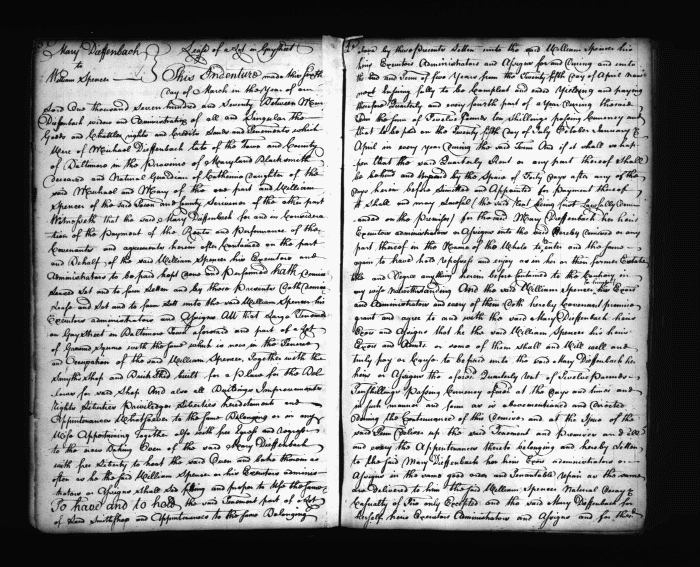 Mary Dieffenbach Lease of a Lot in Gay Street
to
William Spencer This Indenture made this Sixth
day of March in the Year of our
Lord One thousand Seven hundred and Seventy Between Mary
Dieffenbach widow and Administratrix of all and Singular the
Goods and Chattles rights and Credits Lands and Tenements which
Were of Michael Dieffenbach late of the Town and County
of Baltimore in the Province of Maryland Blacksmith
deceased and Natural Guardian of Catherine Daughter of the
said Michael and Mary of the one part and William
Spencer of the said Town and County of the other part
Witnesseth that the said Mary Dieffenbach for and in Considera
tion of the Payment of the Rents and Performance of the
Covenants and agreements herein after Contained on the part
and Behalf of the said William Spencer his Executors and
Administrators to be paid kept done and Performed hath Demised
Leased Set and to farm Letten and by these Presents Doth Demise
Lease and Set and to farm Lett unto the said William Spencer his
Executors administrators and Assigns All that Large Tenement
on Gay Street in Baltimore Town aforesaid and part of a Lot
of Ground with the same which is now in the Tenure
and Occupation of the said William Spencer, Together with the
Smiths Shop and built for a Place for the Bel
lows for said Shop And also all Buildings Improvements
Rights Liberties Priviledges and
Appurtenances Whatsoever to the same Belonging or in any
Wise Appertaining Together also with free Egress and regress
to the now Baking Oven of the said Mary Dieffenbach
with free Liberty to heat the said Oven and bake therein as
often as he the said William Spencer or his Executors adminis
trators or Assigns shall see fitting and proper to Use the same
To have and to hold the said Tenement part of a Lot
of Land Smiths Shop and Appurtenances to the same Belonging
by these Presents Letten unto the said William Spencer his
Executors Administrators and Assigns for and During and unto
the End and Term of Two Years from the Twenty fifth day of April
next Ensuing fully to be Compleat and ended Yielding and paying
therefore Quarterly and every fourth part of a Year During the said
Term the Sum of Twelve Pounds Ten Shillings passing Currency and
that is to say on the Twenty fifth day of July October January &
April in every year During the said Term And if it shall so hap
pen that the said Quarterly Rent or any part thereof shall
be behind and Unpaid by the Space of Forty Days after any of the
days herein before limitted and Appointed for Payment thereof
it shall and may Lawful the said Rent being first Lawfully Dem
anded on the Premises for the said Mary Dieffenbach her heirs
Executors administrators or Assigns into the said hereby Demised or any
part thereof in the Name of the Whole to Enter and the same
again to have hold repossess and enjoy as in her or their former Estate
and Degree anything herein before Contained to the Contrary in
any wise Notwithstanding And the said William Spencer
and Administrators and every of them Doth hereby Covenant promise
grant and agree to and with the said Mary Dieffenbach her
Exors and Assigns that he the said William Spencer his heirs
Exors and or some of them shall and Will well and
truly pay or Cause to be paid unto the said Mary Dieffenbach her
heirs or Assigns the aforesd Quarterly rent of Twelve Pounds
Ten Shillings Passing Currency afsd at the Days and times and
in such manner and form as is abovementioned and Directed
During the Continuance of this Demise and at the Expiration of the
said Term Deliver up the said Tenement and Premises and
every the Appurtenances thereto belonging and hereby Letten
to the said Mary Dieffenbach her heirs Exors administrators or
Assigns in the same good order and Tenantable repair as the same
are Delivered to him the said William Spencer Natural Decay &
Casualty of Fire only Excepted and the said Mary Dieffenbach for
herself heirs Executors Administrators and Assigns and for